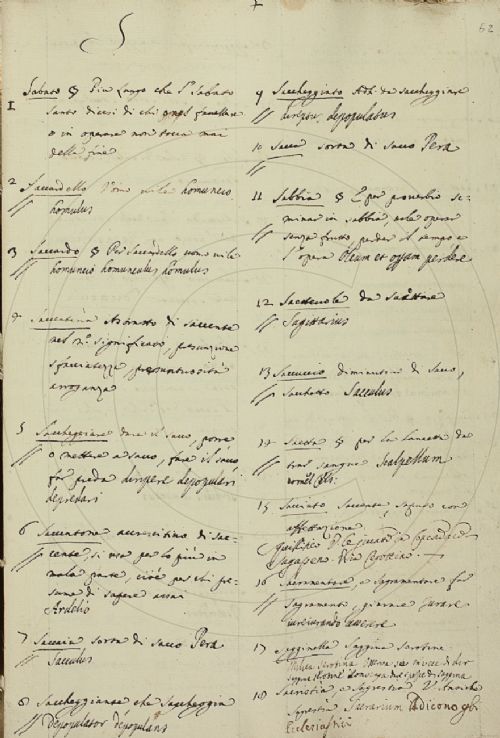 S
52
1 Sabato § Più lungo che l' Sabato
Santo dicesi di chi nel favellare
o in operare non tocca mai
della fine
2 Saccardello Uomo vile homuncio
homulus
3 Saccardo § Per Saccardello uomo vile
homuncio homunculus homulus
Saccenteria Astratto di saccente
nel significato, presunzione
sfacciatezza, presuntuosità
arroganza
5 Saccheggiare dare il sacco, porre
o mettere a sacco, fare il sacco
far preda diripere depopulari
depredari
6 Saccentone accrescitivo di sac=
cente, si usa per lo più in
mala parte, cioè per chi pre=
suma di sapere assai
Ardelio
7 Saccaia sorta di sacco Pera
Sacculus
8 Saccheggiante che Saccheggia
Depopulator depopulans
9 Saccheggiato Add. da Saccheggiare
direptus, depopulatus
10 Sacca sorta di sacco Pera
11 Sabbia § E per proverbio se=
minar in sabbia, vale operar
senza frutto, perder il tempo e
l' opera Oleum et operam perdere
12 da Saettare
Sagittarius
13 Saccuccio diminutivo di Sacco,
Sacchetto Sacculus
14 Saetta § per la lancetta da
trar sangue Scalpellum
15 Sacciuto, Saccente, Saputo con
affettazione
16 Sacramentare, e Sagramentare far
Sagramento, giurare Iurare
iusiurandum
17 Sagginella Saggina Serotina
18 Sacrestia, e Sagrestia
Sagrestia Sacrarium dicono gli
Ecclesiastici